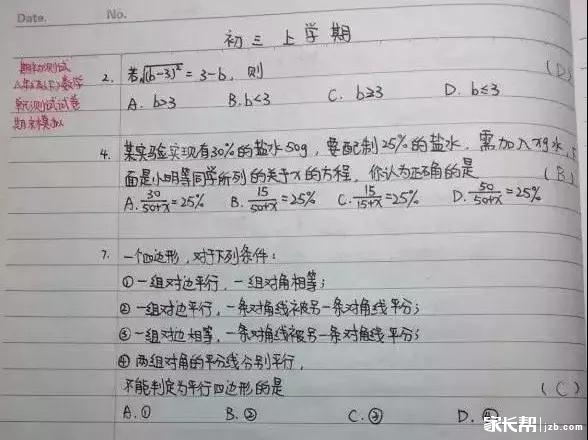 Date. No.
初三上学期
期初测试
八年级(下)数学
单元测试试卷
期末模拟
2. 若√(b-3)² = 3-b, 则 (D)
A. b>3 B. b<3 C. b≥3 D. b≤3
4. 某实验室现有30%的盐水50g, 要配制25%的盐水, 需加入xg水,下
面是小明等同学所列的关于x的方程, 你认为正确的是 (B)
A. 30/50+x=25% B. 15/50+x=25% C. 15/15+x=25% D. 50/50+x=25%
7. 一个四边形, 对于下列条件:
①一组对边平行, 一组对角相等;
②一组对边平行, 一条对角线被另一条对角线平分;
③一组对边相等, 一条对角线被另一条对角线平分;
④两组对角的平分线分别平行,
不能判定为平行四边形的是 (C)
A. ① B. ② C. ③ D. ④
家长帮 jzb.com